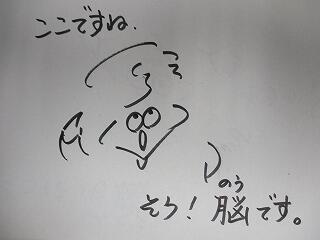 ここですね.
のう
そう!脳です。